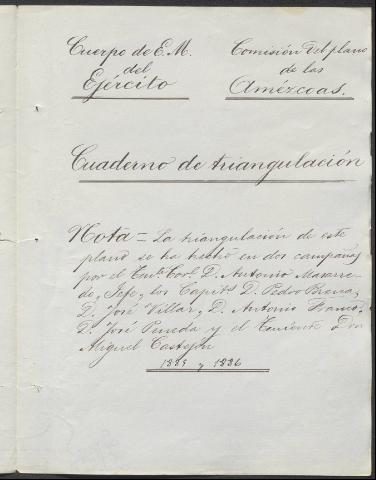 Cuerpo de E.M.
del
Ejército
Comisión del plano
de las
Amézcoas.
Cuaderno de triangulación
Nota = La triangulación de este
plano se ha hecho en dos campañas
por el Tnte. Corl. D. Antonio Mazarre-
do, Jefe, los Capits. D. Pedro
D. José Villar, D. Antonio
D. José Peneda y el Teniente Don
Miguel Castejón
y 1886